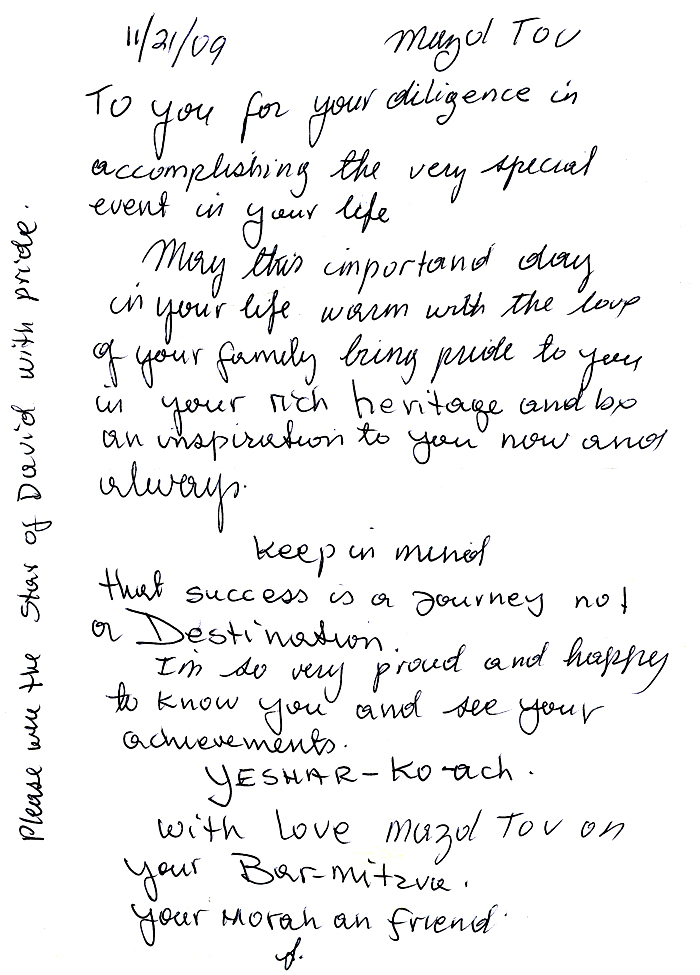 11/21/09 Mazol Tov
To you for your diligence in
accomplishing the very special
event in your life
May this importand day
in your life warm with the love
of your family bring pride to you
in your rich heritage and be
an inspiration to you now and
always.
Keep in mind
that success is a Journey not
a Destination.
I'm so very proud and happy
to know you and see your
achievements.
YESHAR-Ko-ach.
with love Mazol Tov on
your Bar-mitzva.
your Morah an friend.
Please the Star of David with pride.